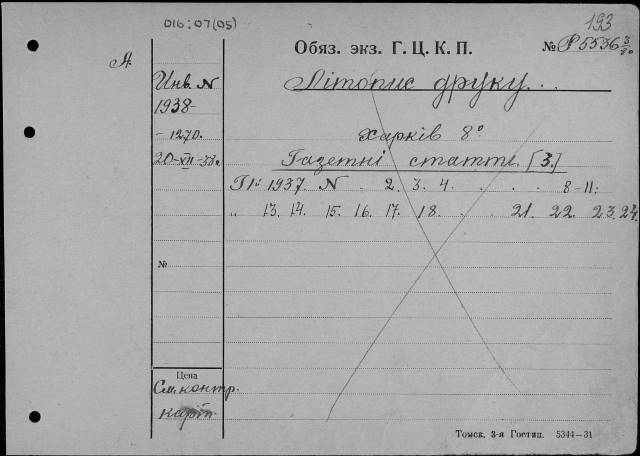 016:07(05)
193
Обяз. экз. Г. Ц. К. П. № Р5536 3/80
А
Инв. N
Літопис друку...
1938-
-1270.
Харків 8°
20-XII-38г.
Газетні статті [3.]
Г1: 1937. N . 2. 3. 4. . . . 8-11.
„ 13. 14. 15. 16. 17. 18. . . 21. 22. 23. 24.
№
Цена
См. контр.
карт.
Томск. 3-я Гостип. 5344—31